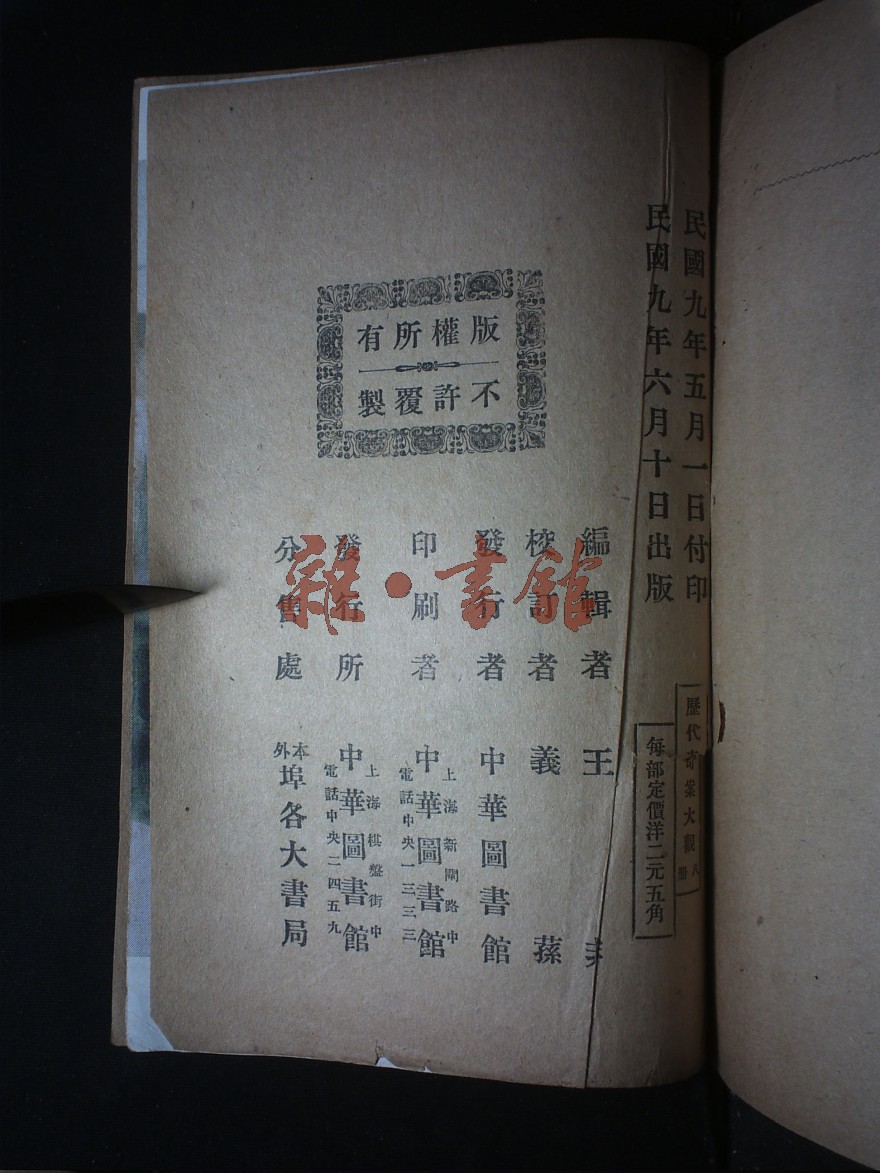 民國九年五月一日付印
民國九年六月十日出版
歷代奇案大觀 八册
每部定價洋二元五角
版權所有
不許覆製
編輯者 王
校訂者 義 蓀
發行者 中華圖書館
印刷者 上海新閘路中 中華圖書館 電話中央一三三三
發行所 上海棋盤街中 中華圖書館 電話中央二四五九
分售處 本外埠各大書局
雜·書館